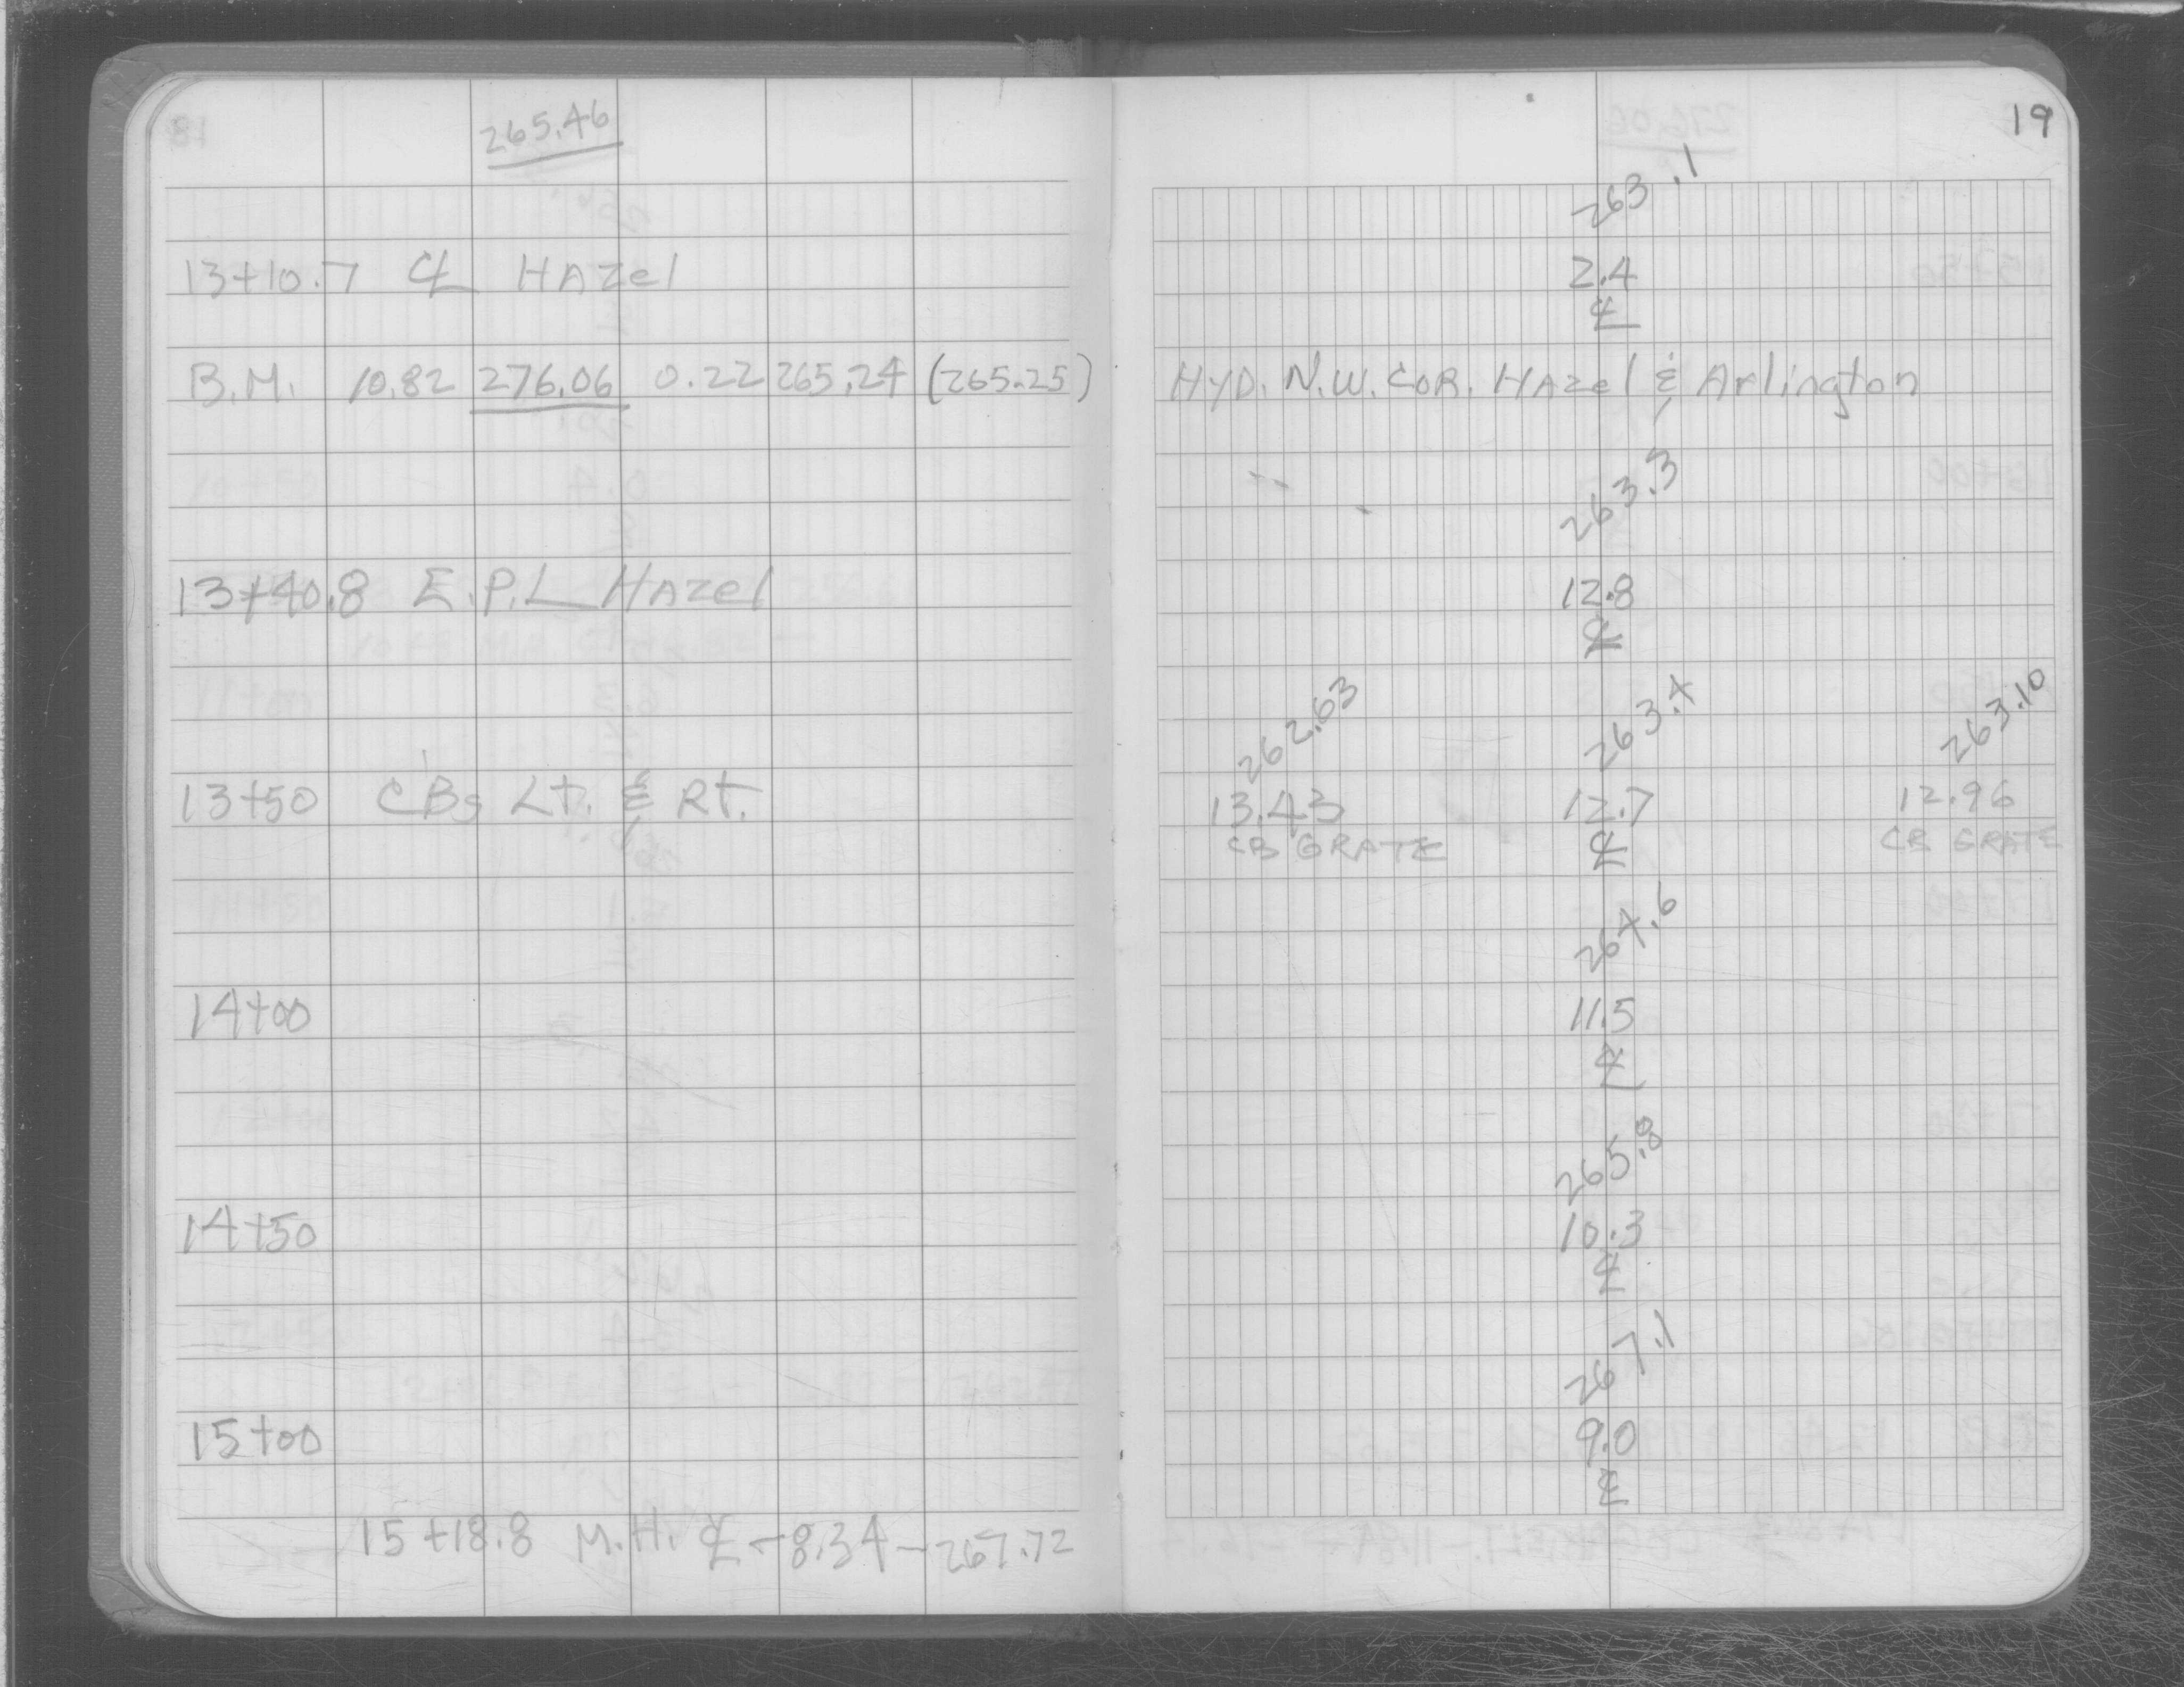 265.46
13+10.7 ℄ HAzel
B.M. 10.82 276.06 0.22 265.24 (265.25)
13+40.8 E.P.L HAzel
13+50 CBs Lt. & Rt.
14+00
14+50
15+00
15+18.8 M.H. ℄ - 8.34 - 267.72
19
263.1
2.4
℄
HYD. N.W. COR. HAzel & Arlington
263.3
12.8
℄
262.63 263.4 263.10
13.43 12.7 12.96
CB GRATE ℄ CB GRATE
264.6
11.5
℄
265.8
10.3
℄
267.1
9.0
℄